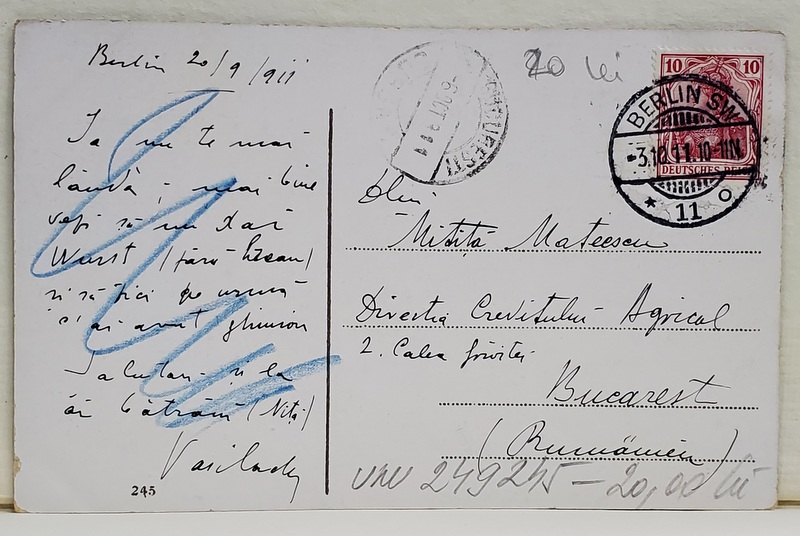 Berlin 20/9/911
Ia nu te mai
lăuda ; mai bine
vezi să nu dai
Wurst (fără
și să zici pe urmă
c'ai avut ghinion
Salutări și la
ăi bătrâni (Nița)
Vasilache
245
BUCUREȘTI
20 lei
10 10
DEUTSCHES REICH
BERLIN SW
-3.10.11.10-11N.
* 11 O
Dlui
Mitită Mateescu
Direcția Creditului Agricol
2. Calea Griviței
Bucarest
(Rumänien)
249245 - 20,00 lei